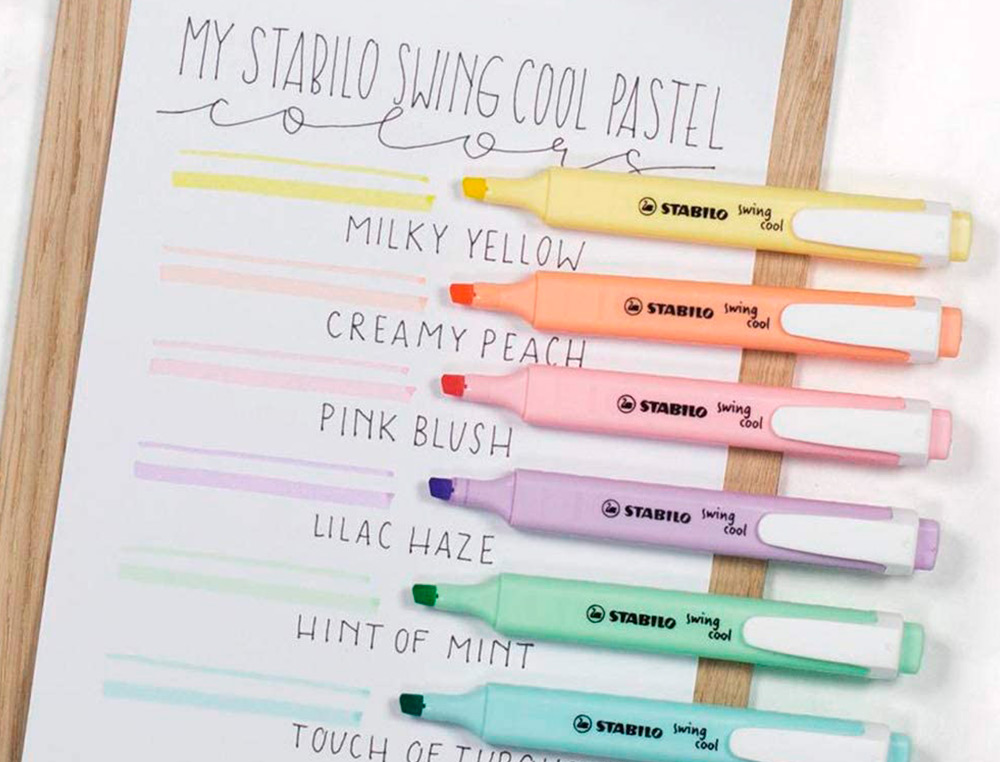 MY STABILO SWING COOL PASTEL
colors
STABILO swing cool
MILKY YELLOW
STABILO swing cool
CREAMY PEACH
STABILO swing cool
PINK BLUSH
STABILO swing cool
LILAC HAZE
STABILO swing cool
HINT OF MINT
STABILO swing cool
TOUCH OF